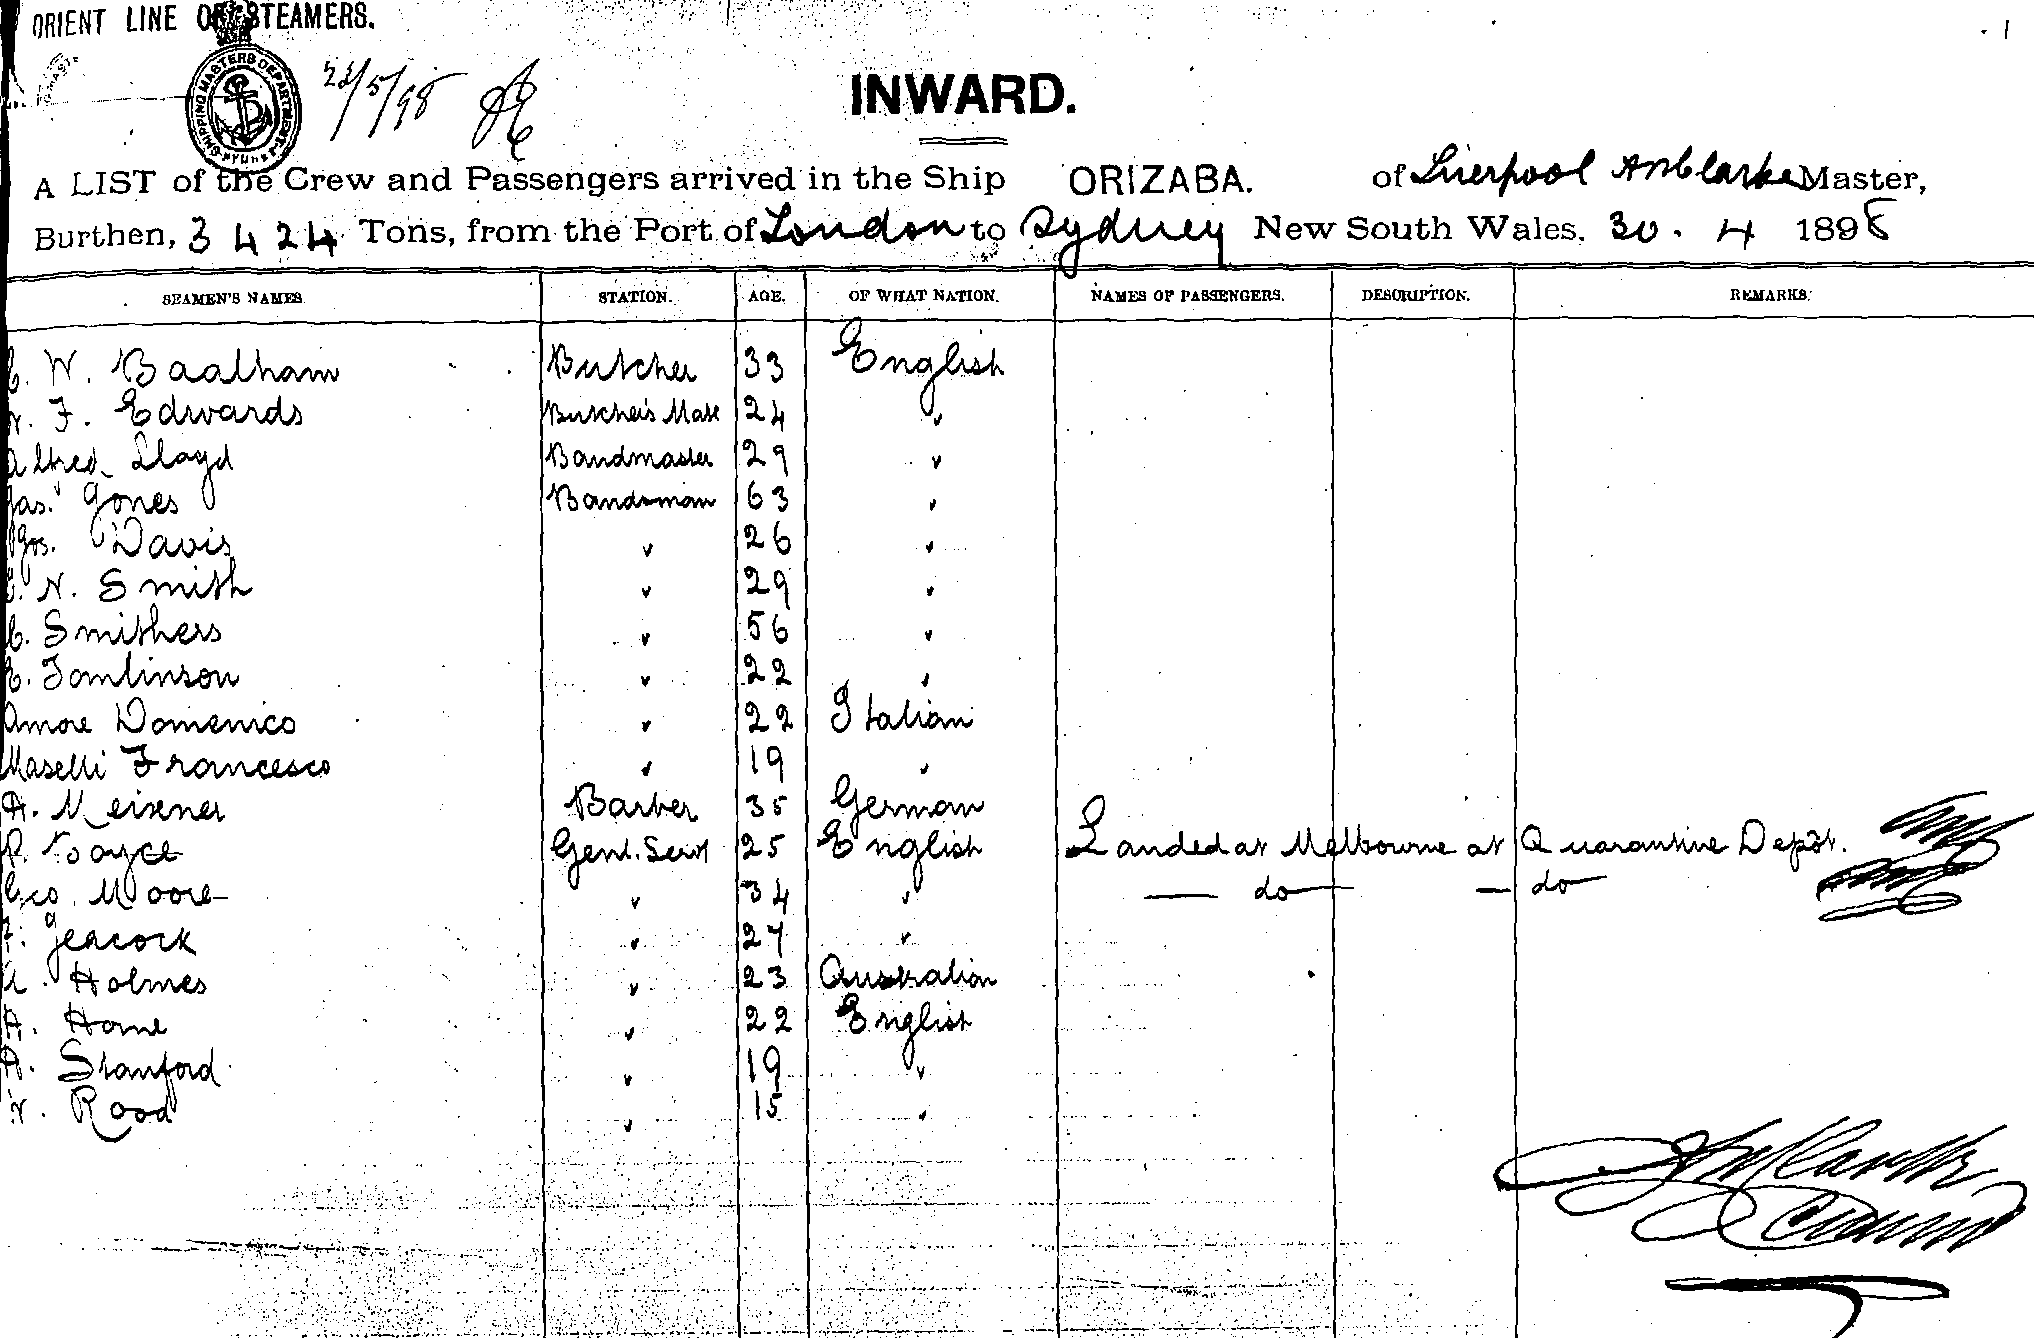 ORIENT LINE OF STEAMERS.
SHIPPING MASTERS DEPARTMENT
/5/98
INWARD.
A LIST of the Crew and Passengers arrived in the Ship ORIZABA. of Liverpool Clarke Master,
Burthen, 3424 Tons, from the Port of London to Sydney New South Wales. 30. 4 1898
SEAMEN'S NAMES. STATION. AGE. OF WHAT NATION. NAMES OF PASSENGERS. DESCRIPTION. REMARKS.
W. Baalham Butcher 33 English
F. Edwards Butcher's Mate 24 "
Alfred Lloyd Bandmaster 29 "
Jas. Jones Bandsman 63 "
Davis " 26 "
N. Smith " 29 "
C. Smithers " 56 "
E. Tomlinson " 22 "
Amore Domenico " 22 Italian
Maselli Francesco " 19 "
A. Meixner Barber 35 German
Gen'l. Serv't 25 English Landed at Melbourne at Quarantine Depôt.
Geo. Moore " 34 " — do — — do —
Jeacock " 27 "
Holmes " 23 Australian
A. Horne " 22 English
A. Stanford " 19 "
Rood " 15 "